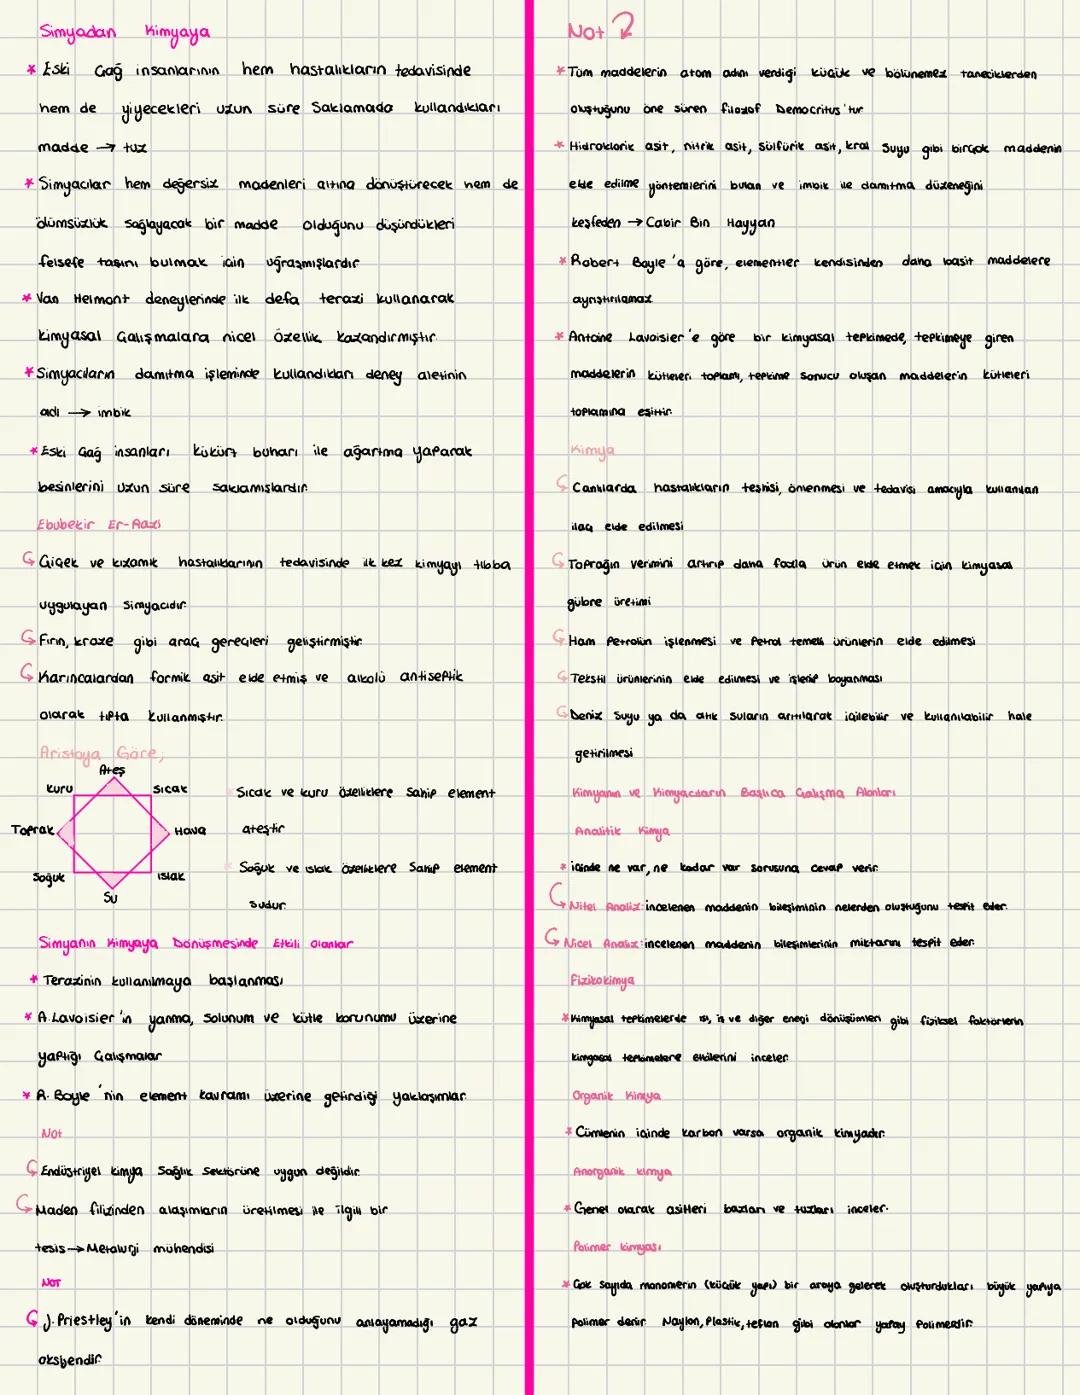 Simyadan Kimyaya
* Eski Çağ insanlarının hem hastalıkların tedavisinde
hem de yiyecekleri uzun süre saklamada kullandıkları
madde → tuz
* Simyacılar hem değersiz madenleri altına dönüştürecek hem de
ölümsüzlük sağlayacak bir madde olduğunu düşündükleri
felsefe taşını bulmak için uğraşmışlardır
* Van Helmont deneylerinde ilk defa terazi kullanarak
kimyasal çalışmalara nicel özellik kazandırmıştır
* Simyacıların damıtma işleminde kullandıkları deney aletinin
adı → imbik
* Eski Çağ insanları kükürt buharı ile ağartma yaparak
besinlerini uzun süre saklamışlardır.
Ebubekir Er-Razi
Çiçek ve kızamık hastalıklarının tedavisinde ilk kez kimyayı tıbba
uygulayan simyacıdır
Fırın, kroze gibi araç gereçleri geliştirmiştir
Karıncalardan formik asit elde etmiş ve alkolü antiseptik
olarak tıpta kullanmıştır.
Aristoya Göre;
Ateş
kuru sıcak
Toprak Hava
Soğuk ıslak
Su
Sıcak ve kuru özelliklere sahip element
ateştir
Soğuk ve ıslak özelliklere sahip element
sudur
Simyanın Kimyaya Dönüşmesinde Etkili olanlar
* Terazinin kullanılmaya başlanması
* A.Lavoisier'in yanma, solunum ve kütle korunumu üzerine
yaptığı çalışmalar
* R. Boyle'nin element kavramı üzerine getirdiği yaklaşımlar
Not
Endüstriyel kimya Sağlık sektörüne uygun değildir
Maden filizinden alaşımların üretilmesi ile ilgili bir
tesis → Metalurji mühendisi
NOT
J. Priestley'in kendi döneminde ne olduğunu anlayamadığı gaz
oksijendir
Not
* Tüm maddelerin atom adını verdiği küçük ve bölünemez taneciklerden
oluştuğunu öne süren filozof Democritus'tur
* Hidroklorik asit, nitrik asit, sülfürik asit, kral suyu gibi birçok maddenin
elde edilme yöntemlerini bulan ve imbik ile damıtma düzeneğini
keşfeden → Cabir Bin Hayyan
* Robert Boyle'a göre, elementler kendisinden daha basit maddelere
ayrıştırılamaz
* Antoine Lavoisier'e göre bir kimyasal tepkimede, tepkimeye giren
maddelerin kütleleri toplamı, tepkime sonucu oluşan maddelerin kütleleri
toplamına eşittir.
Kimya
Canlılarda hastalıkların teşhisi, önlenmesi ve tedavisi amacıyla kullanılan
ilaç elde edilmesi
Toprağın verimini artırıp daha fazla ürün elde etmek için kimyasal
gübre üretimi
Ham Petrolün işlenmesi ve Petrol temelli ürünlerin elde edilmesi
Tekstil ürünlerinin elde edilmesi ve işlenip boyanması
Deniz Suyu ya da atık suların arıtılarak içilebilir ve kullanılabilir hale
getirilmesi
Kimyanın ve Kimyacıların Başlıca Çalışma Alanları
Analitik Kimya
* içinde ne var, ne kadar var sorusuna cevap verir.
Nitel Analiz: incelenen maddenin bileşiminin nelerden oluştuğunu tespit eder.
Nicel Analiz: incelenen maddenin bileşimlerinin miktarını tespit eder.
Fizikokimya
* Kimyasal tepkimelerde ısı, iş ve diğer enerji dönüşümleri gibi fiziksel faktörlerin
kimyasal tepkimelere etkilerini inceler
Organik Kimya
* Cümlenin içinde karbon varsa organik kimyadır.
Anorganik kimya
* Genel olarak asitleri bazları ve tuzları inceler.
Polimer kimyası
* Çok sayıda monomerin (küçük yapı) bir araya gelerek oluşturdukları büyük yapıya
polimer denir Naylon, Plastik, teflon gibi olanlar yapay polimerdir.